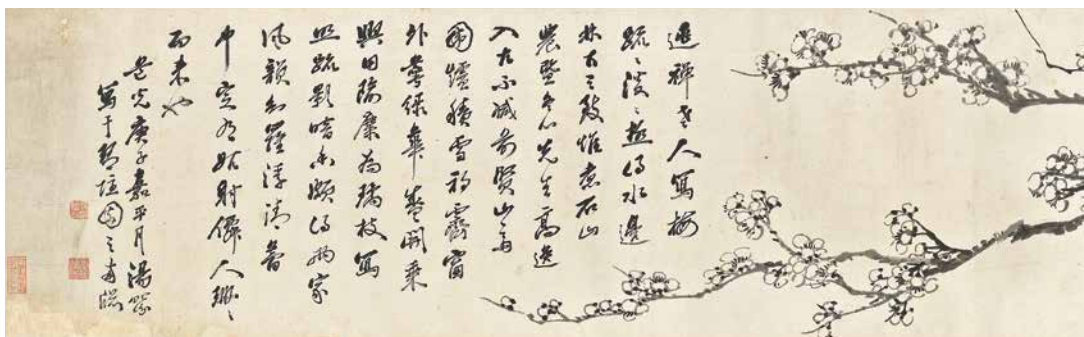 逃禪老人寫梅
疏〻淡〻極得水邊
林下之致惟煮石山
農暨冬心先生高逸
入古不減前賢山齋
圍爐積雪初霽窗
外萼綠華盛開乘
興用隃麋為瓊枝寫
照疏影暗香頗得兩家
風韻如羅浮清夢
中定有姑射僊人珊〻
而來也
道光庚子嘉平月湯貽汾
寫于琴隱園之南牕